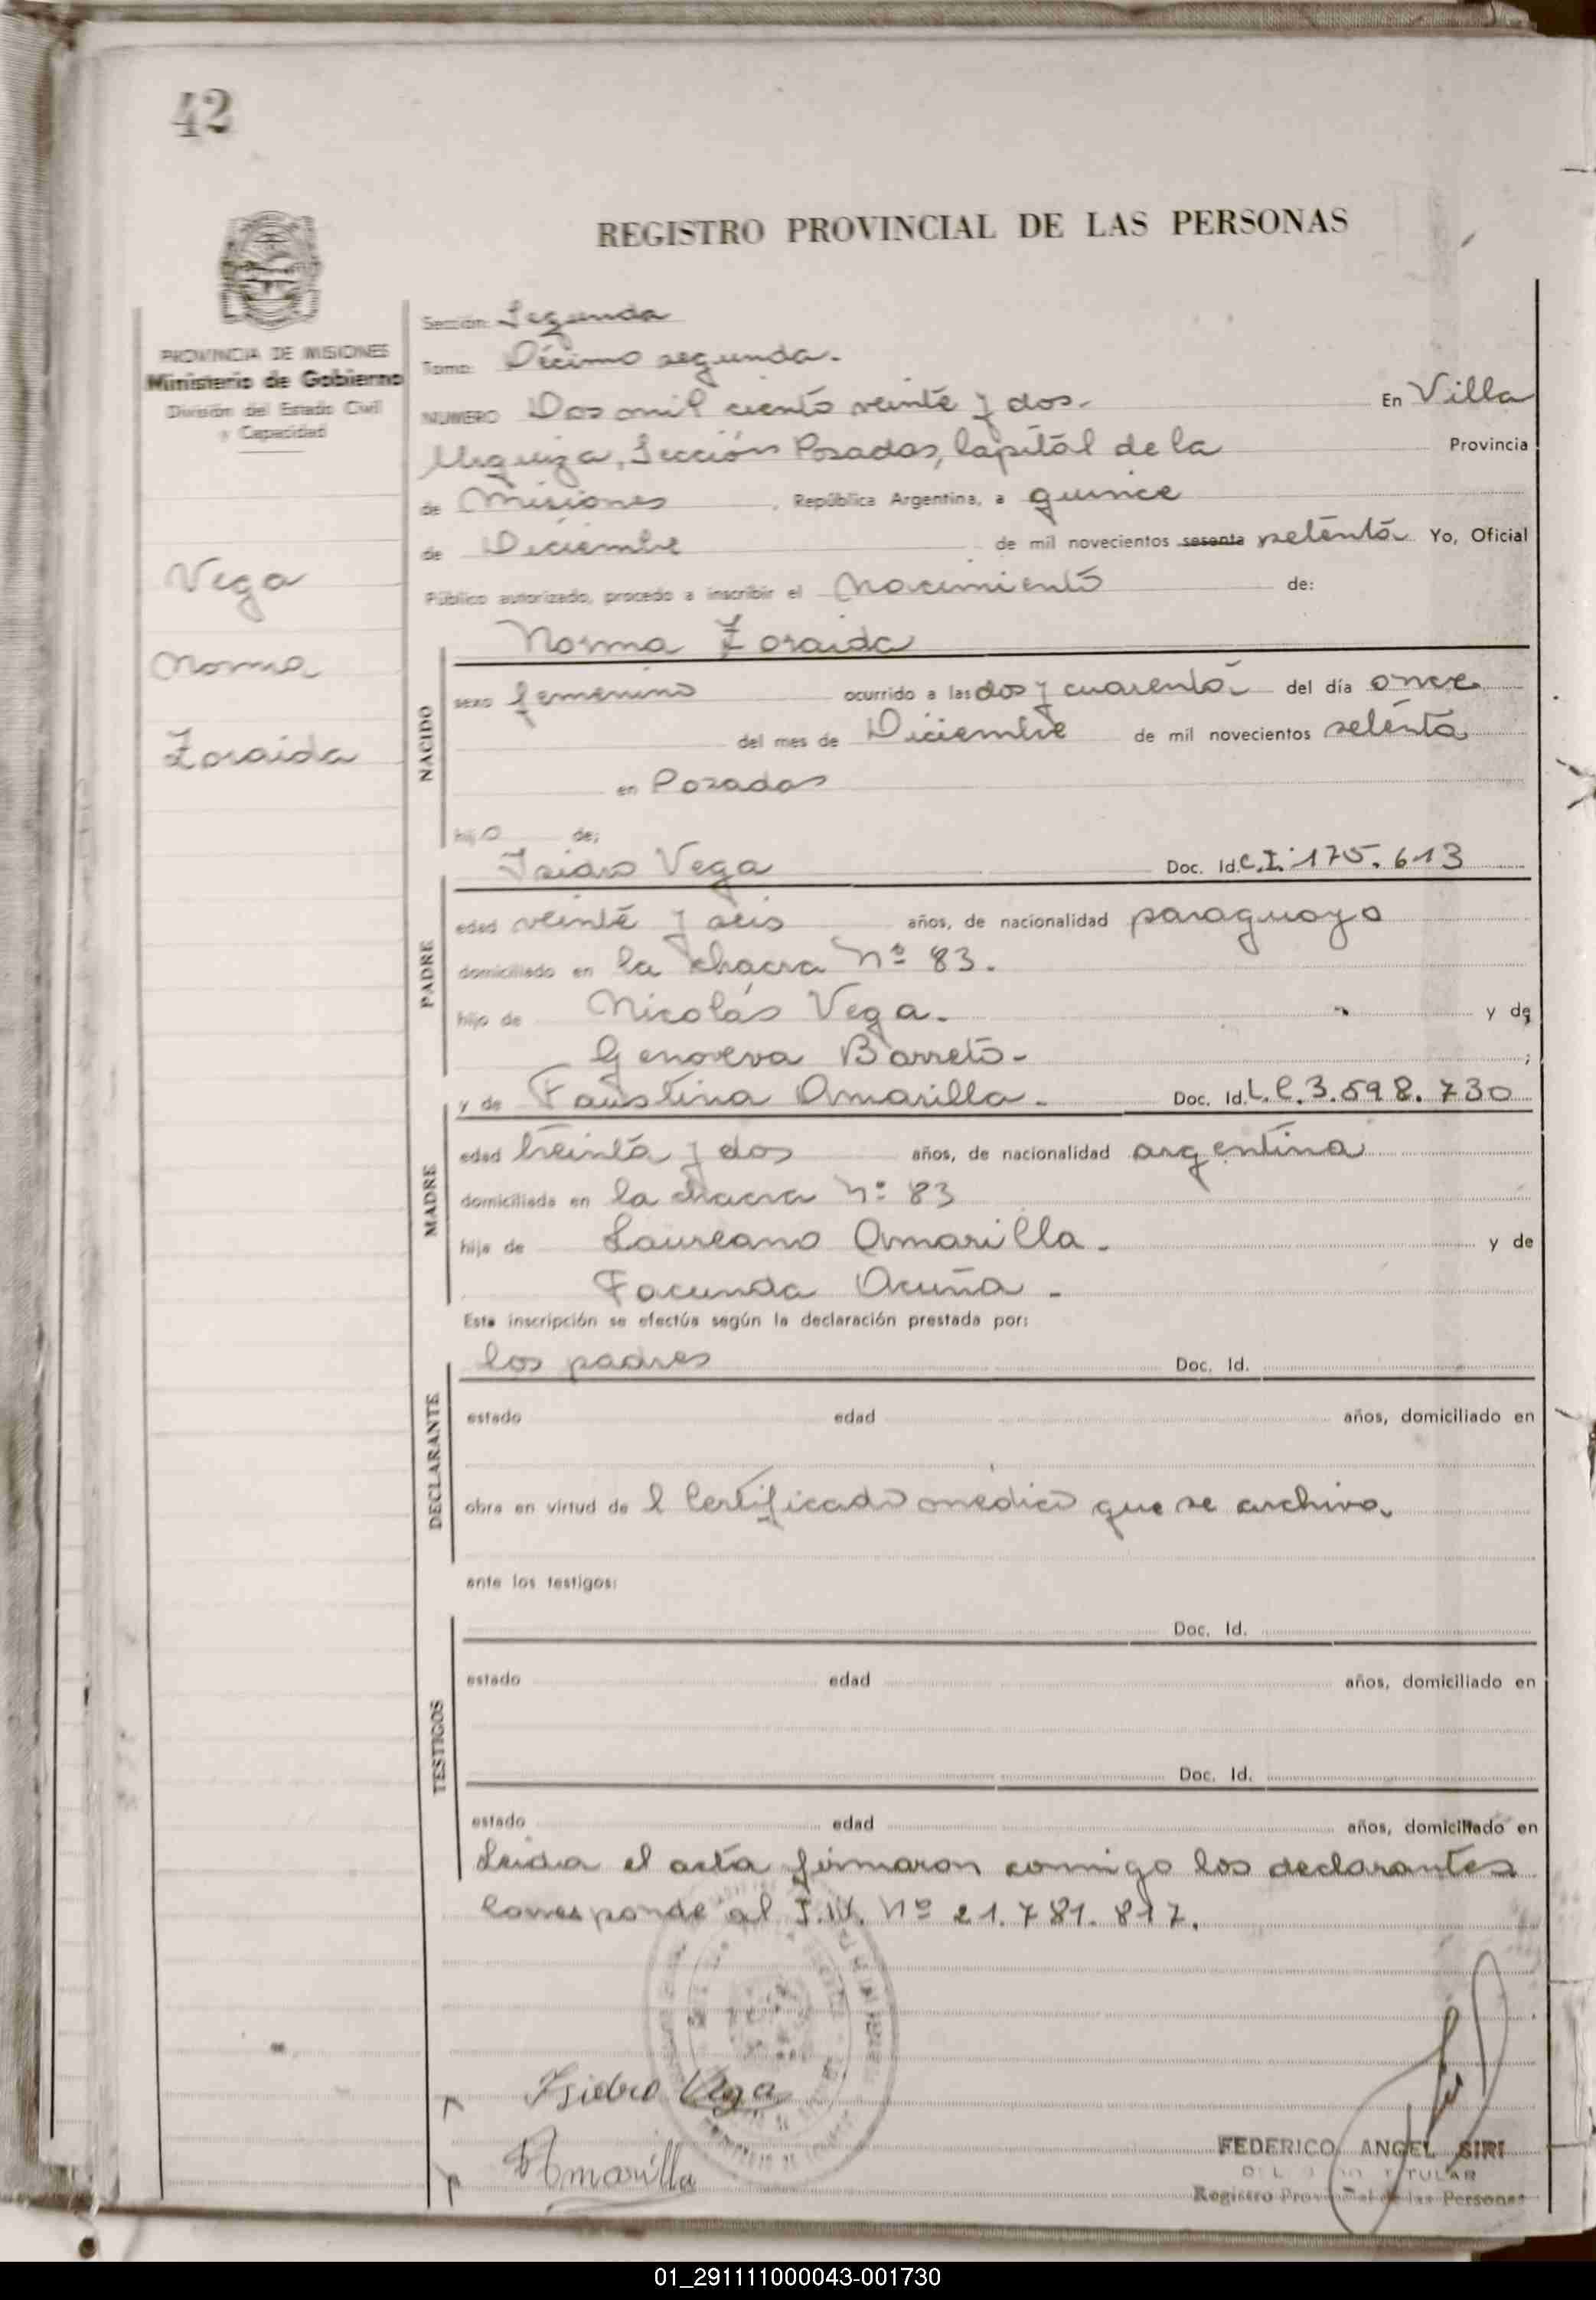 42
REGISTRO PROVINCIAL DE LAS PERSONAS
PROVINCIA DE MISIONES
Ministerio de Gobierno
División del Estado Civil
y Capacidad
Vega
Norma
Zoraida
Sección: Segunda
Tomo: Décimo segunda.
NUMERO Dos mil ciento veinte y dos. En Villa
Urquiza, Sección Posadas, Capital de la Provincia
de Misiones, República Argentina, a quince
de Diciembre de mil novecientos sesenta setenta Yo, Oficial
Público autorizado, procedo a inscribir el Nacimiento de:
Norma Zoraida
NACIDO
sexo femenino ocurrido a las dos y cuarenta del día once
del mes de Diciembre de mil novecientos setenta
en Posadas
hijo de;
Isidro Vega Doc. Id. C.I. 175.613
PADRE
edad veinte y seis años, de nacionalidad paraguayo
domiciliado en la chacra Nº 83.
hijo de Nicolás Vega. y de
Genoveva Barreto- ;
y de Faustina Amarilla. Doc. Id. L.C. 3.598.730
MADRE
edad treinta y dos años, de nacionalidad argentina
domiciliada en la chacra Nº 83
hija de Laureano Amarilla. y de
Facunda Acuña -
Esta inscripción se efectúa según la declaración prestada por:
los padres Doc. Id.
DECLARANTE
estado edad años, domiciliado en
obra en virtud de l Certificado médico que se archiva.
ante los testigos:
Doc. Id.
TESTIGOS
estado edad años, domiciliado en
Doc. Id.
estado edad años, domiciliado en
Leida el acta firmaron conmigo los declarantes
Corresponde al Nº 21.781.817.
Isidro Vega
Amarilla
FEDERICO ANGEL SIRI
TITULAR
Registro Provincial de las Personas
01_291111000043-001730